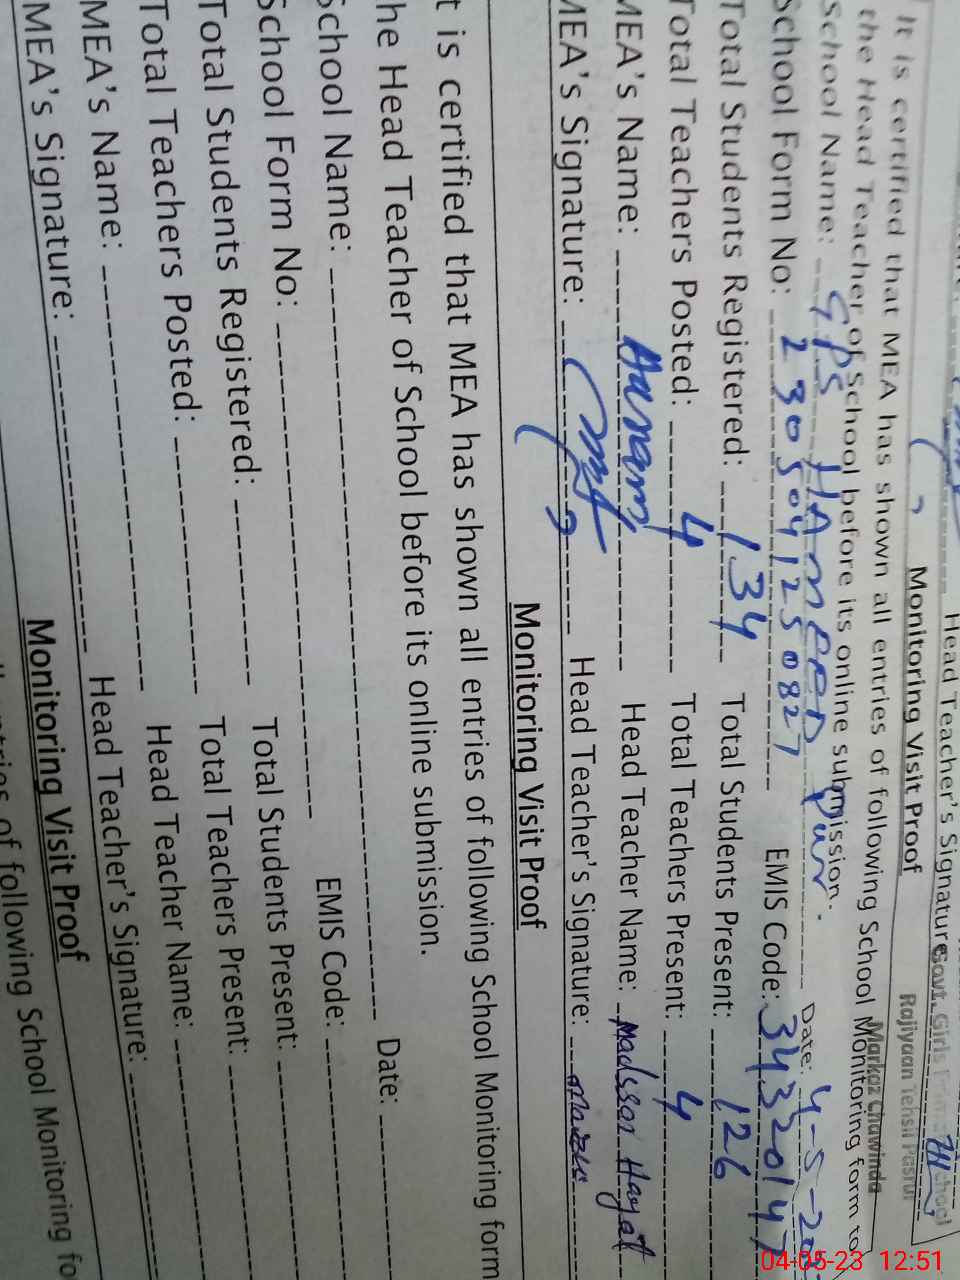 Head Teacher's Signature
Govt. Girls School
Markaz Chawinda
Rajiyaan Tehsil Pasrur
Monitoring Visit Proof
It is certified that MEA has shown all entries of following School Monitoring form to
the Head Teacher of School before its online submission.
School Name: GPS HAMEED Pur. Date: 4-5-20
School Form No: 2305041250827 EMIS Code: 34320147
Total Students Registered: 134 Total Students Present: 126
Total Teachers Posted: 4 Total Teachers Present: 4
MEA's Name: Head Teacher Name: Madssar Hayat
MEA's Signature: Head Teacher's Signature:
Monitoring Visit Proof
t is certified that MEA has shown all entries of following School Monitoring form
he Head Teacher of School before its online submission.
School Name: Date:
School Form No: EMIS Code:
Total Students Registered: Total Students Present:
Total Teachers Posted: Total Teachers Present:
MEA's Name: Head Teacher Name:
MEA's Signature: Head Teacher's Signature:
Monitoring Visit Proof
of following School Monitoring fo
04-05-23 12:51